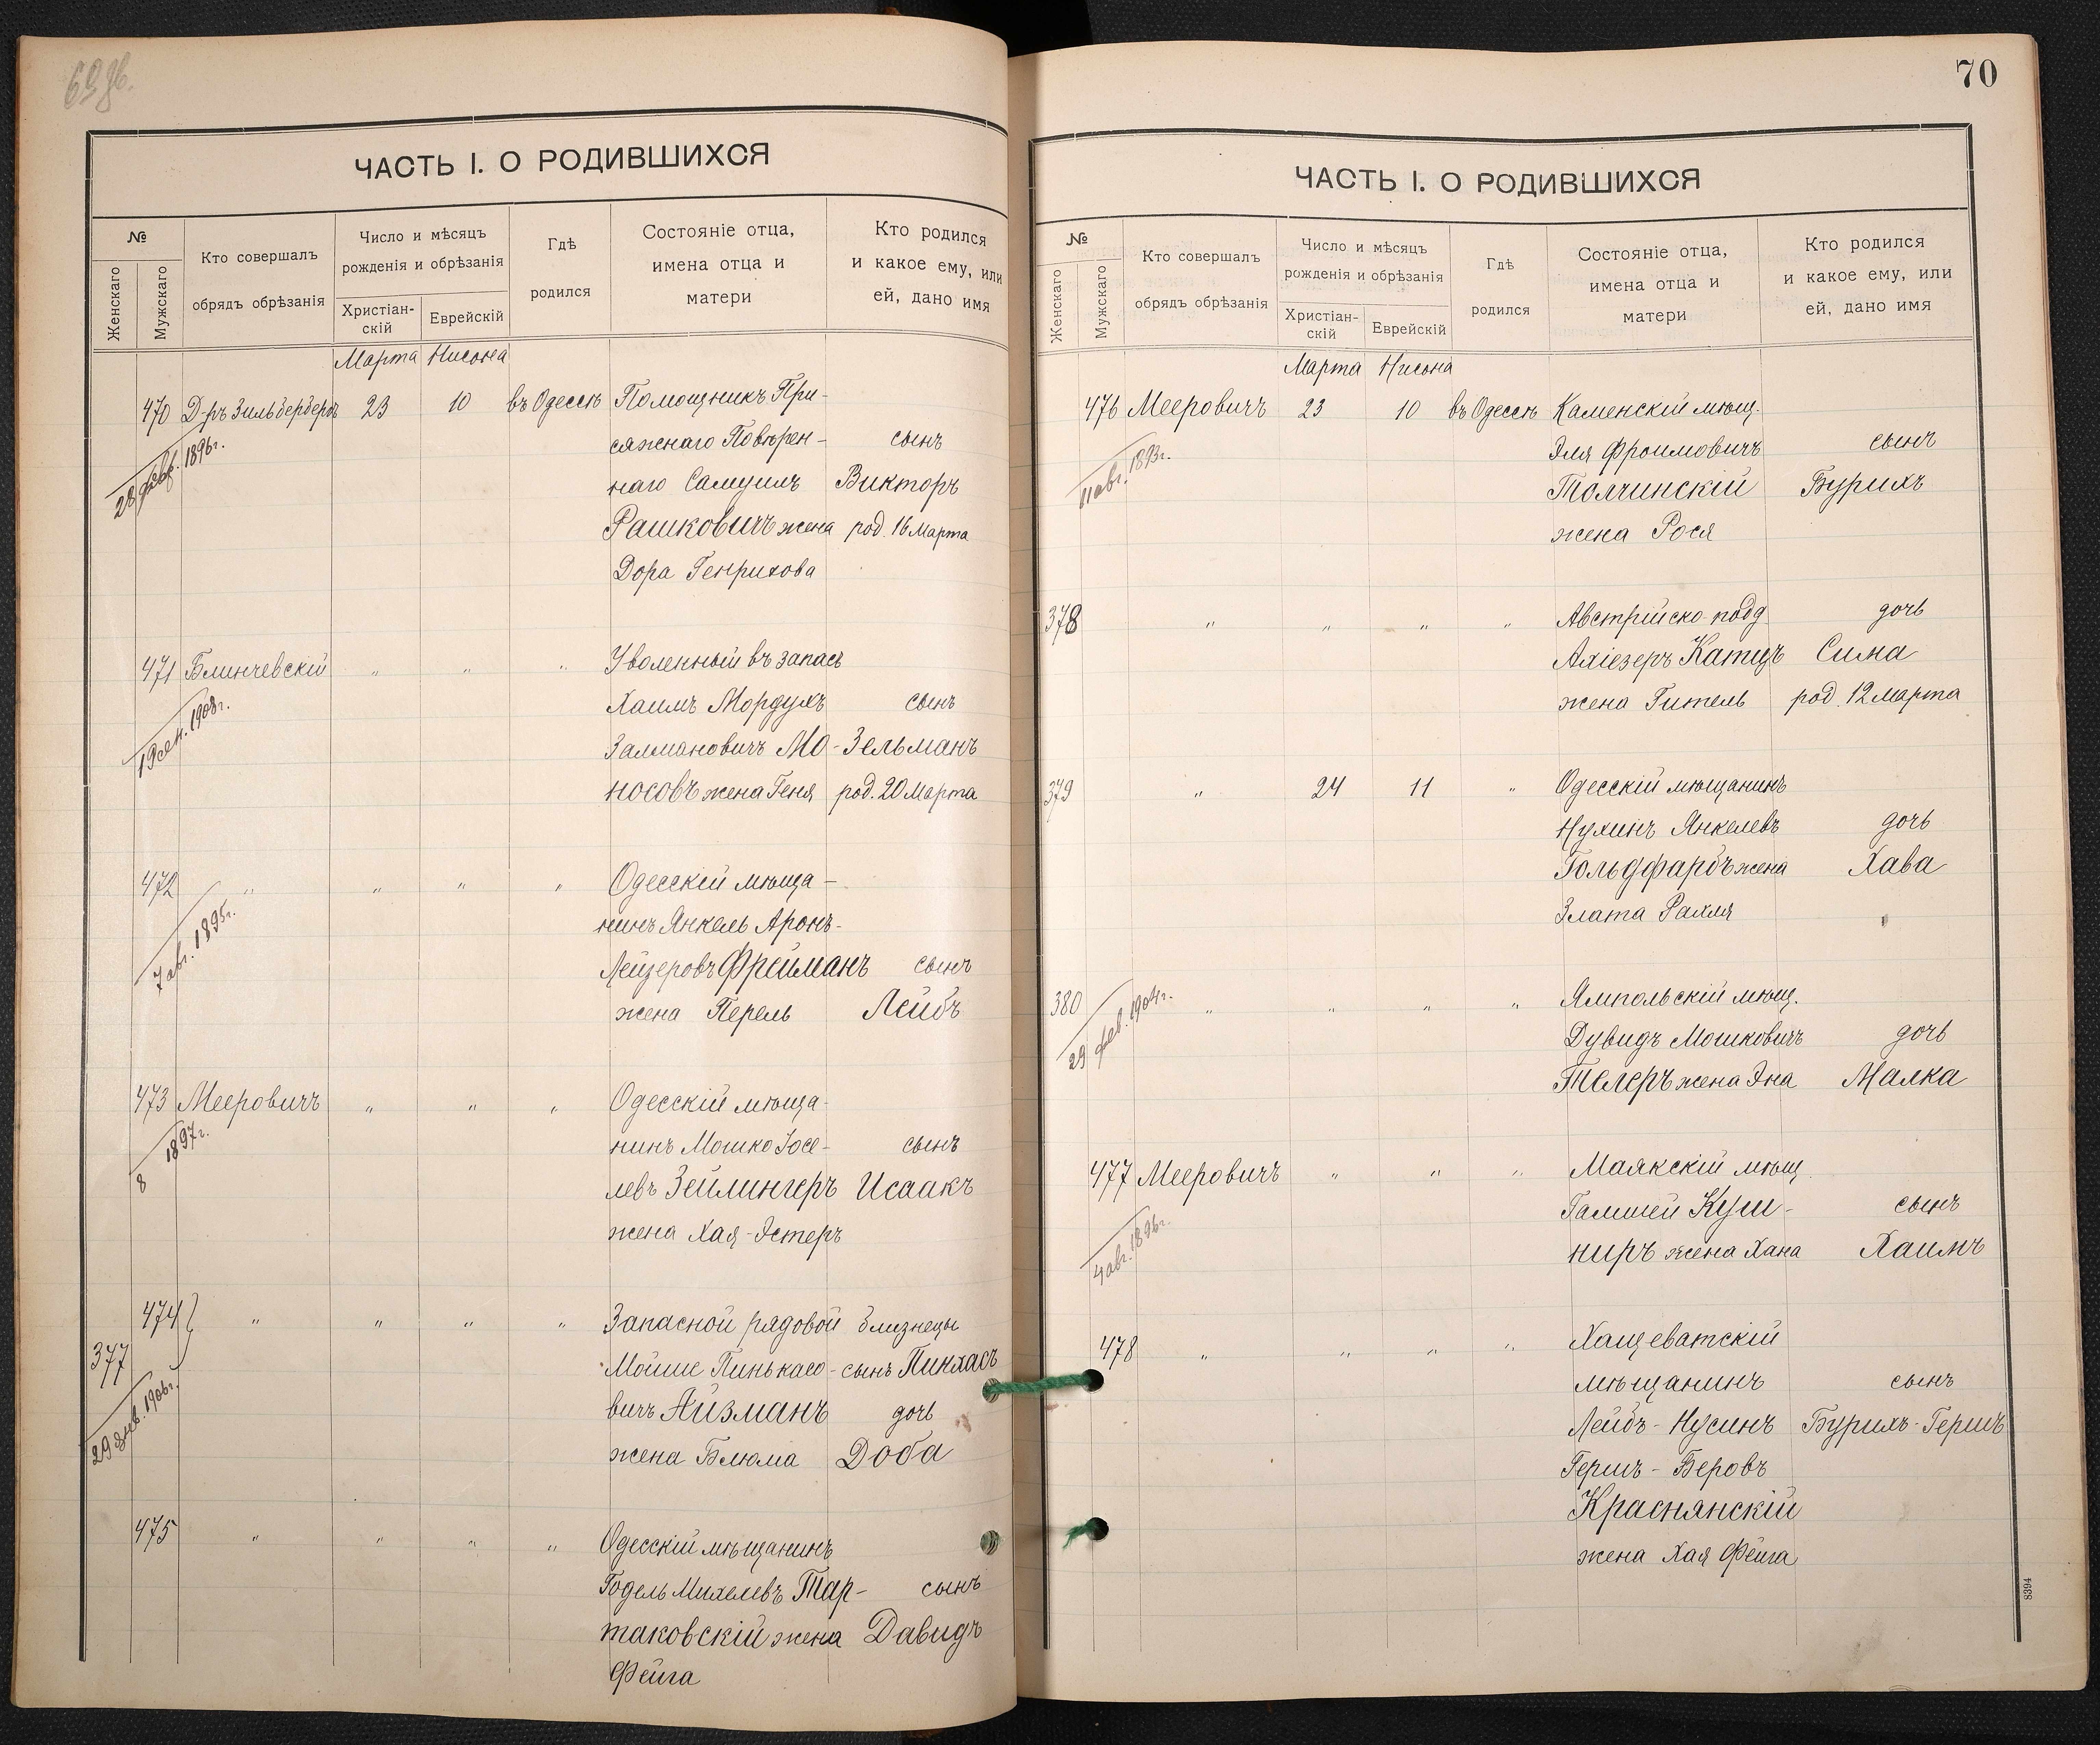 69 об.
ЧАСТЬ I. О РОДИВШИХСЯ
№
Женскаго
Мужскаго
Кто совершалъ
обрядъ обрѣзанія
Число и мѣсяцъ
рожденія и обрѣзанія
Христіан-
скій
Еврейскій
Гдѣ
родился
Состояніе отца,
имена отца и
матери
Кто родился
и какое ему, или
ей, дано имя
Марта Нисона
470 Д-ръ Зильбербергъ 23 10 въ Одессѣ Помощникъ При-
сяжнаго Повѣрен- сынъ
наго Самуилъ Викторъ
28 февр. 1896г.
Рашковичъ жена род. 16 Марта
Дора Генрихова
471 Блинчевскій " " " Уволенный въ запасъ
Хаимъ Мордухъ сынъ
19 сен. 1908г.
Залмановичъ Мо- Зельманъ
носовъ жена Геня род. 20 Марта
472 " " " " Одесскій мѣща-
нинъ Янкель Аронъ-
7 авг. 1895г.
Лейзеровъ Фрейманъ сынъ
жена Перель Лейбъ
473 Мееровичъ " " " Одесскій мѣща-
нинъ Мошко Іосе- сынъ
8 1897г.
левъ Зейлингеръ Исаакъ
жена Хая-Эстеръ
474 " " " " Запасной рядовой близнецы
377 Мойше Пинькасо- сынъ Пинхасъ
вичъ Айзманъ дочь
29 янв. 1906г.
жена Блюма Доба
475 " " " " Одесскій мѣщанинъ
Годель Михелевъ Тар- сынъ
таковскій жена Давидъ
Фейга
70
ЧАСТЬ I. О РОДИВШИХСЯ
№
Женскаго
Мужскаго
Кто совершалъ
обрядъ обрѣзанія
Число и мѣсяцъ
рожденія и обрѣзанія
Христіан-
скій
Еврейскій
Гдѣ
родился
Состояніе отца,
имена отца и
матери
Кто родился
и какое ему, или
ей, дано имя
Марта Нисона
476 Мееровичъ 23 10 въ Одессѣ Каменскій мѣщ.
Эля Фроимовичъ сынъ
11 авг. 1893г.
Толчинскій Бурихъ
жена Рося
378 " " " " Австрійско подд дочь
Ахіезеръ Катцъ Сима
жена Гитель род. 12 марта
379 " 24 11 " Одесскій мѣщанинъ
Нухинъ Янкелевъ дочь
Гольдфарбъ жена Хава
Злата Рахля
380 " " " " Ямпольскій мѣщ.
29 фев. 1904г.
Дувидъ Мошковичъ дочь
Телеръ жена Эна Малка
477 Мееровичъ " " " Маякскій мѣщ.
Гамшей Куш- сынъ
4 авг. 1896г.
ниръ жена Хана Хаимъ
478 " " " " Хащеватскій
мѣщанинъ сынъ
Лейбъ-Нусинъ Бурихъ-Гершъ
Гершъ-Беровъ
Краснянскій
жена Хая Фейга
8394